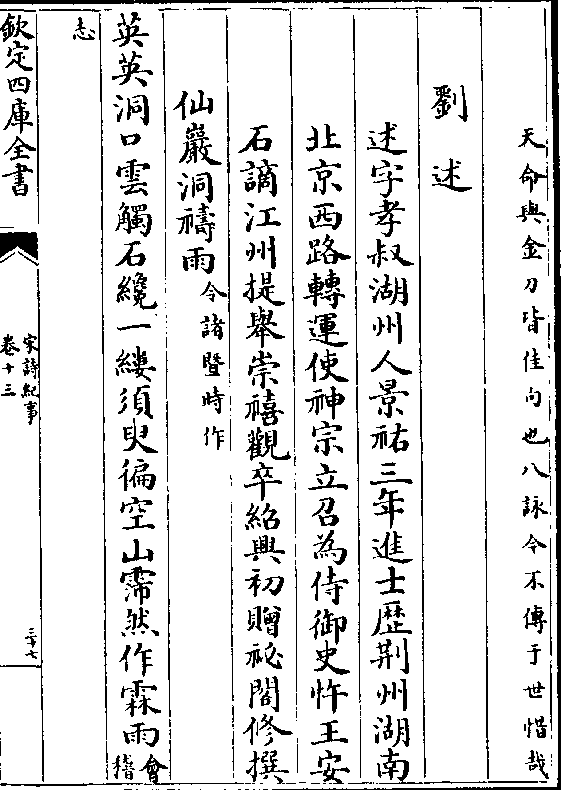 天命與金刀皆佳句也八詠今不傳于世惜哉
劉述
述字孝叔湖州人景祐三年進士歴荆州湖南
北京西路轉運使神宗立召為侍御史忤王安
石謫江州提舉崇禧觀卒紹興初贈祕閣修撰
仙巖洞禱雨令諸暨時作
英英洞口雲觸石纔一縷須臾徧空山霈然作霖雨會稽
志
欽定四庫全書
宋詩紀事
卷十三
三十七